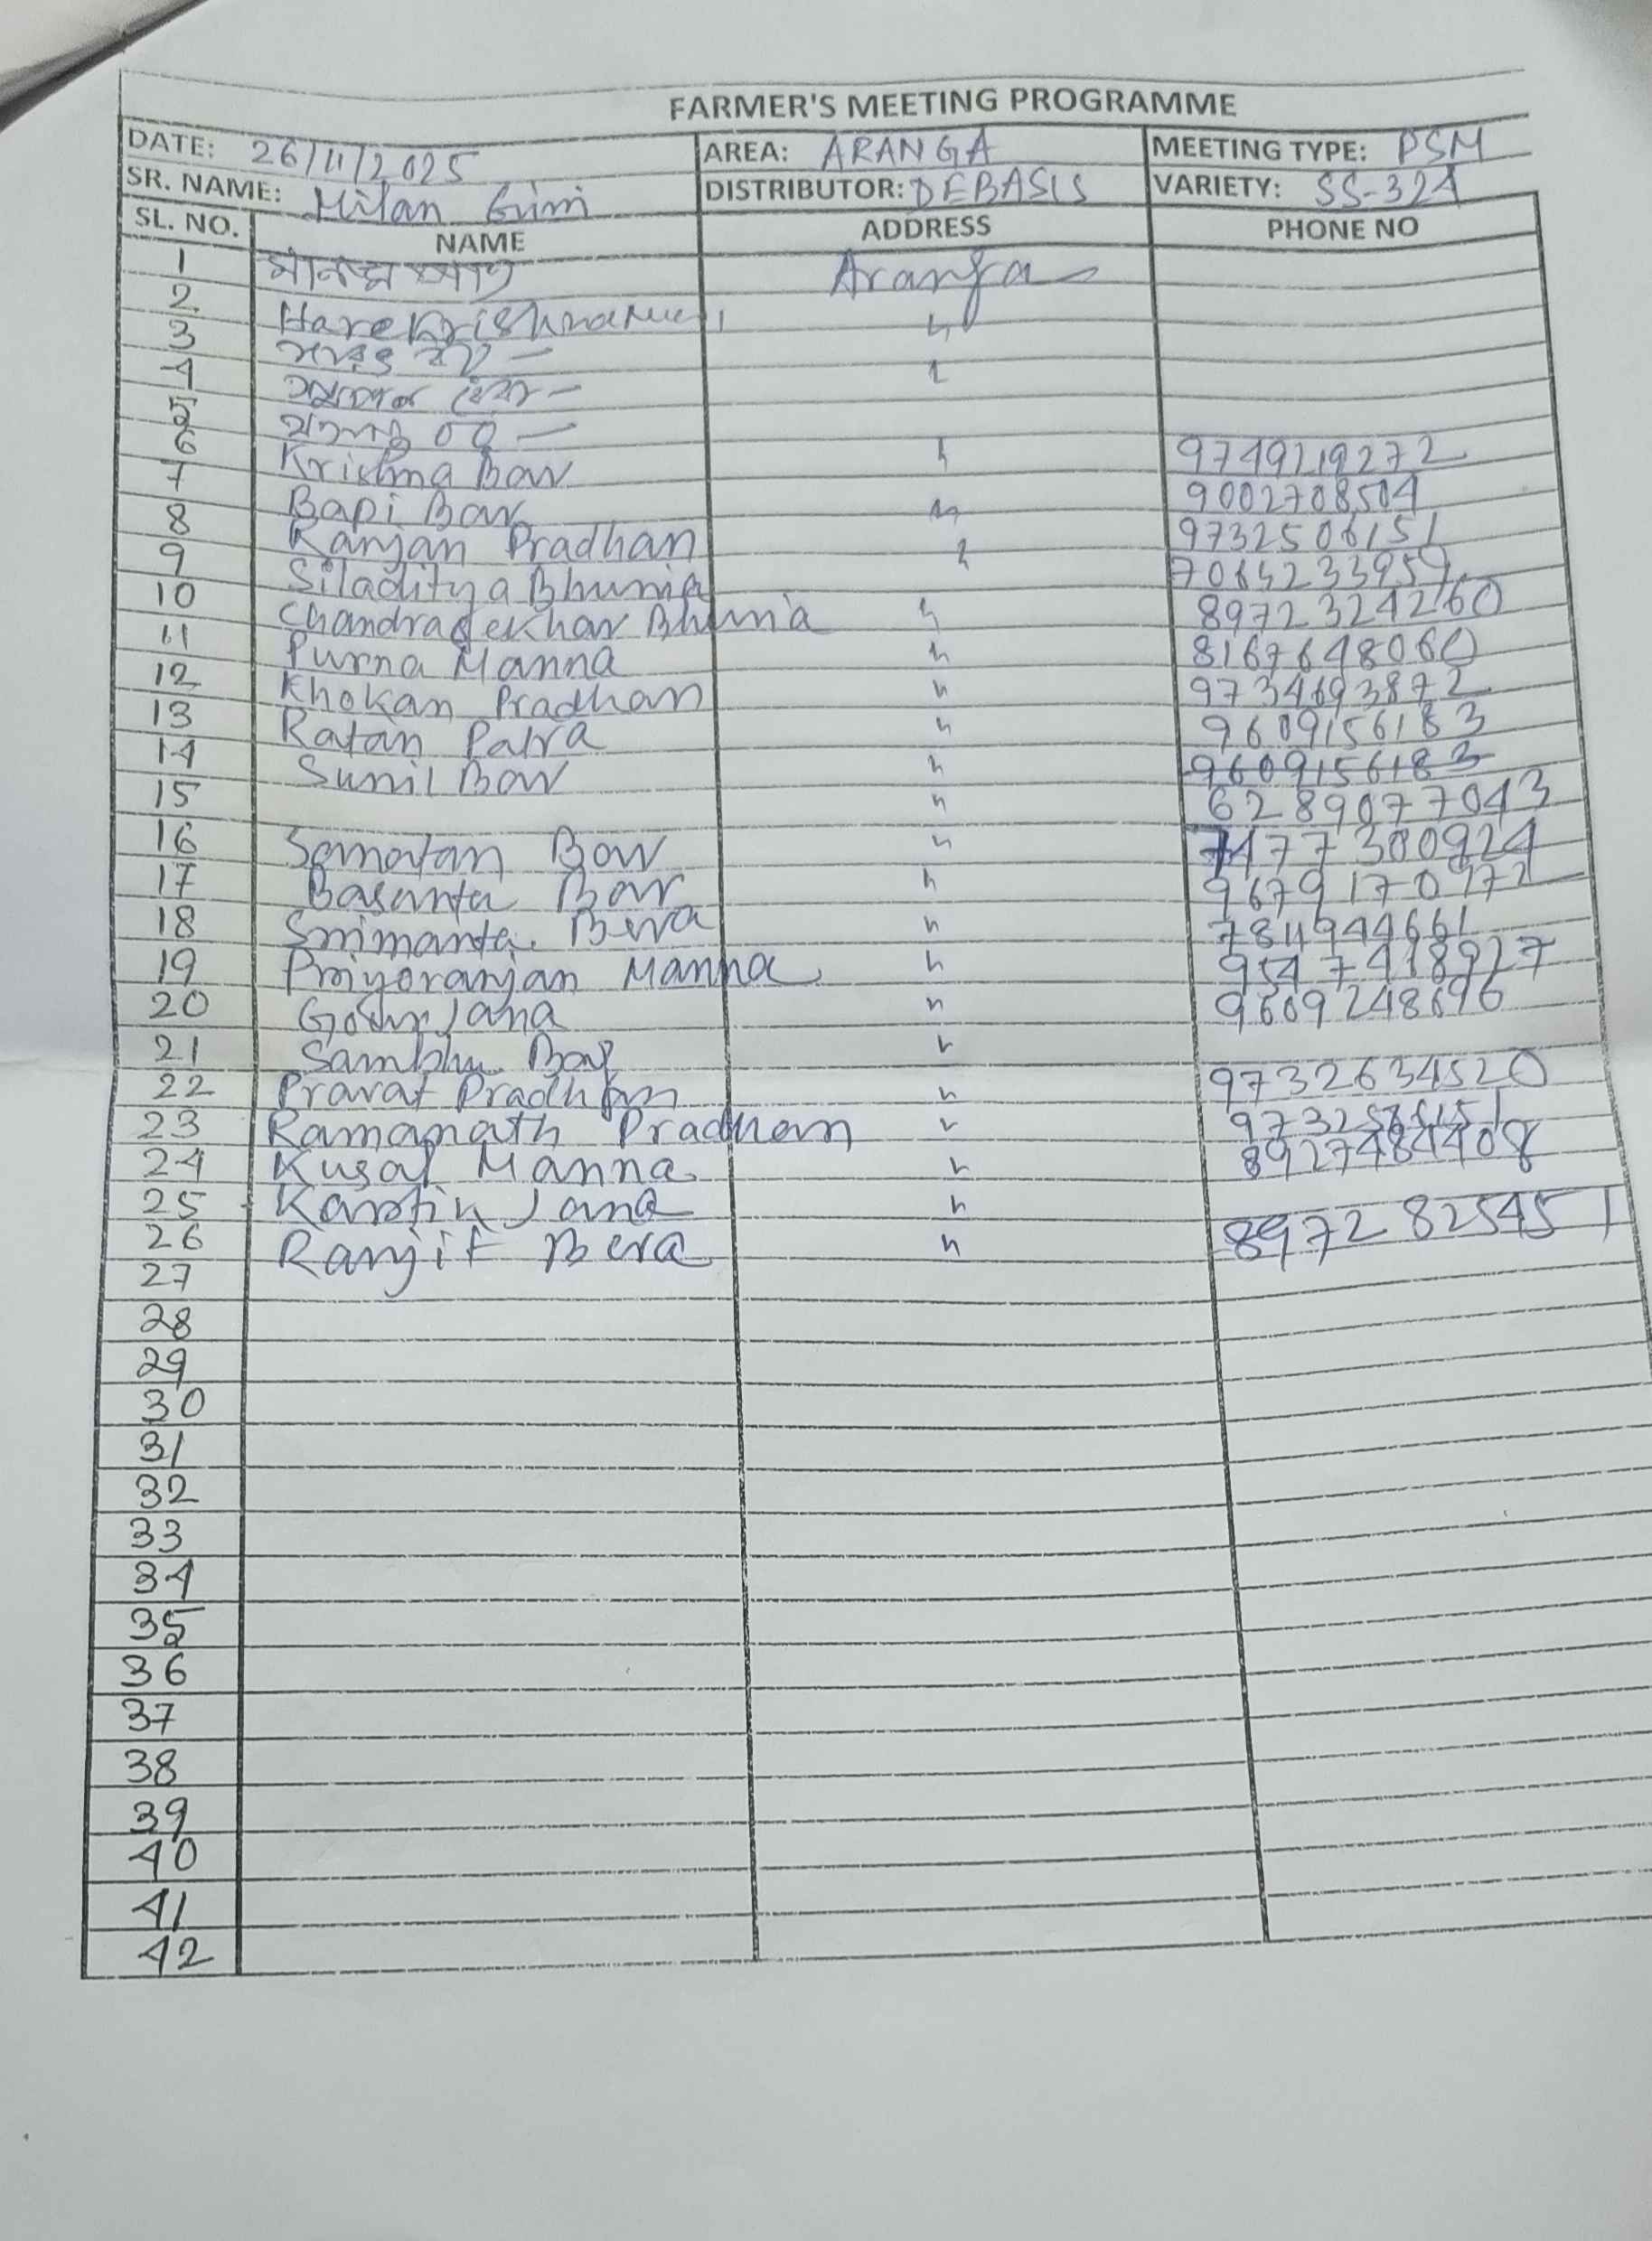 FARMER'S MEETING PROGRAMME
DATE: 26/11/2025 AREA: ARANGA MEETING TYPE: PSM
SR. NAME: Milan Giri DISTRIBUTOR: DEBASIS VARIETY: SS-324
SL. NO. NAME ADDRESS PHONE NO
1 Aranga
2 Hare Krishna
3
4
5
6 Krishna Bar 9749219272
7 Bapi Bar 9002708504
8 Ranjan Pradhan 9732506151
9 Siladitya Bhunia
10 Chandrasekhar Bhunia 8972324260
11 Purna Manna 8167648060
12 Khokan Pradhan 9734693872
13 Ratan Patra 9609156183
14 Sunil Bar 9609156183
15 6289077043
16 Sanatan Bar 7477300924
17 Basanta Bar
18 Srimanta Bera 7811944661
19 Priyoranjan Manna
20 Gour Jana 9609248696
21 Sambhu Bag
22 Pravat Pradhan 9732634520
23 Ramanath Pradhan
24 Kusal Manna 8927484408
25 Kartik Jana
26 Ranjit Bera 8972825451
27
28
29
30
31
32
33
34
35
36
37
38
39
40
41
42